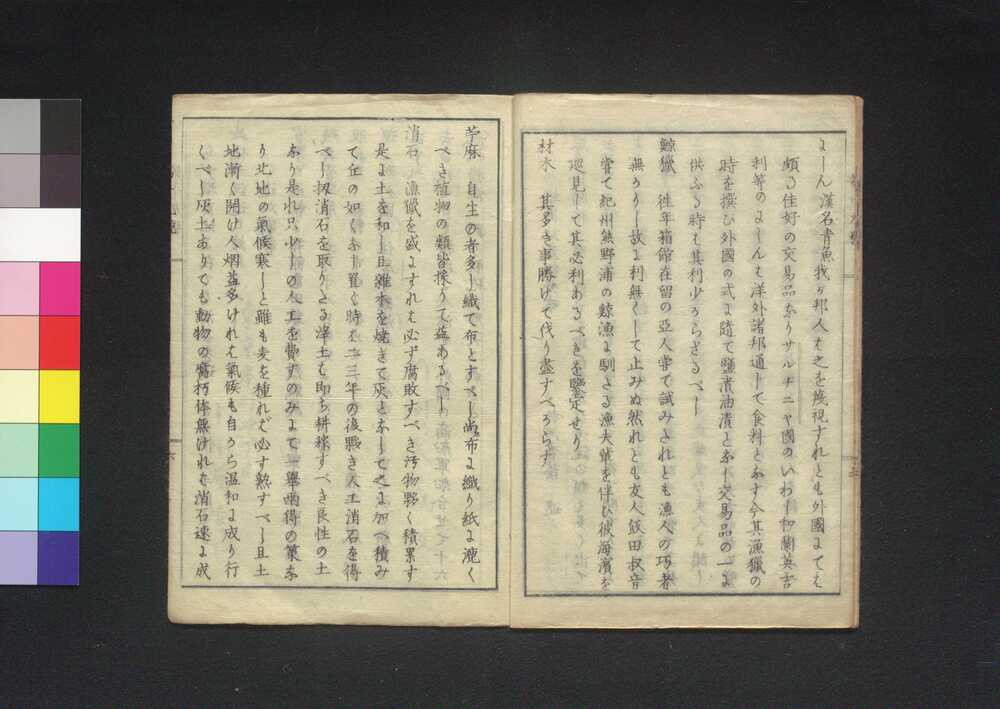 にしん 漢名青魚我が邦人ハ之を幾視すれとも外國にてハ
頗る佳好の交易品なりサルチニヤ國のいわし和蘭英吉
利等のにしんハ洋外諸邦通して食料となす今其漁獵の
時を撰ひ外國の式に隨て鹽漬油漬となし交易品の一に
供ふる時ハ其利少からざるべし
鯨獵 往年箱館在留の亞人嘗て試みたれとも漁人の巧者
無かりし故に利無くして止みぬ然れとも友人飯田叔音
嘗て紀州熊野浦の鯨漁に馴たる漁夫輩を伴ひ彼海濱を
巡見して其必利あるべきを鑒定せり
材木 其多き事勝けて伐り盡すべからず
苧麻 自生の者多し織て布とすべし尚布に織り紙に漉く
べき植物の類皆採りて益あるべし
消石 漁獵を盛にすれハ必ず腐敗すべき汚物夥く積累す
是に土を和し且雜木を燒きて灰となして之に加へ積み
て丘の如くなし置く時ハ二三年の後夥き人工消石を得
べし扨消石を取りたる滓土も即ち耕稼すべき良性の土
なり是れ只少しの人工を費すのみにて一舉兩得の策な
り北地の氣候寒しと雖も麦を種れバ必す熟すべし且土
地漸く開け人烟益多けれハ氣候も自から温和に成り行
くべし灰土ありても動物の腐朽体無けれハ消石速に成